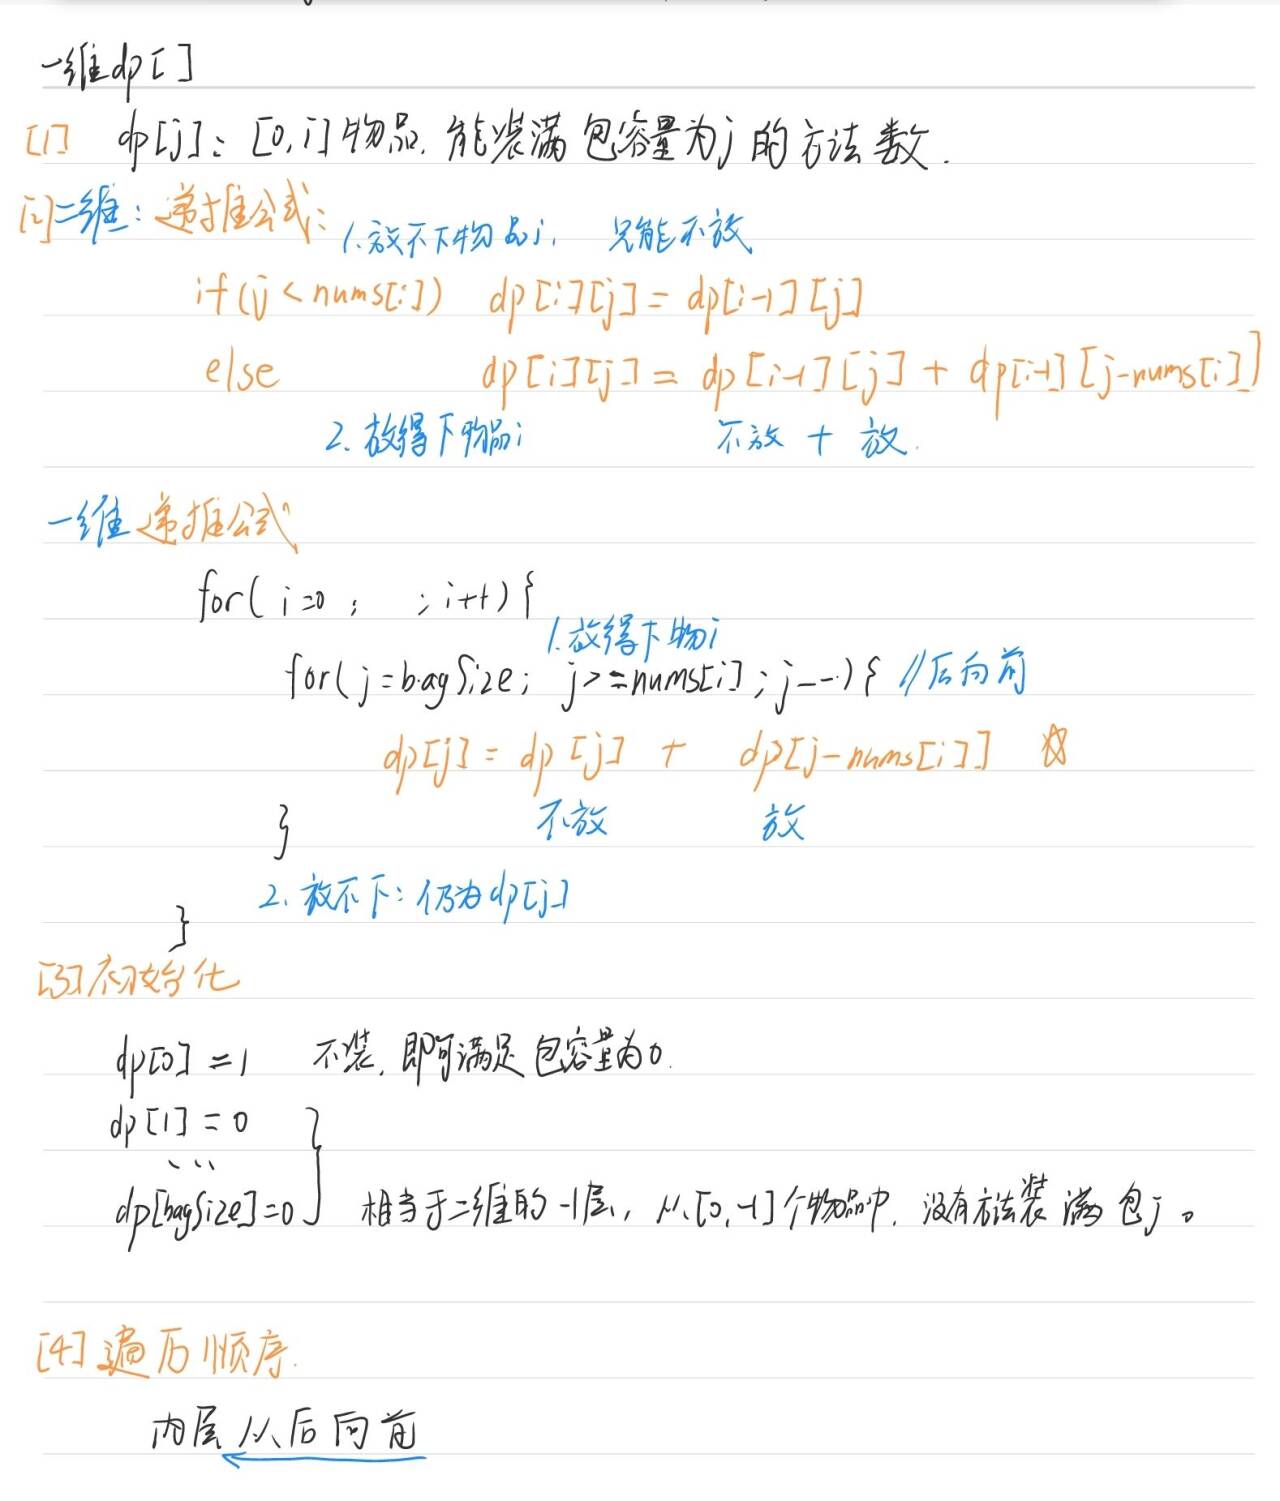 一维dp[]
[1] dp[j]: [0,i]物品, 能装满包容量为j的方法数.
[2]二维: 递推公式:
1.放不下物品i, 只能不放
if(j<nums[i]) dp[i][j]=dp[i-1][j]
else dp[i][j]=dp[i-1][j]+dp[i-1][j-nums[i]]
2.放得下物品i 不放 + 放.
一维递推公式
for(i=0; ;i++){
1.放得下物i
for(j=bagSize; j>=nums[i];j--){ //后向前
dp[j]=dp[j] + dp[j-nums[i]] ☆
} 不放 放
2.放不下:仍为dp[j]
}
[3]初始化
dp[0]=1 不装,即可满足包容量为0.
dp[1]=0
...
dp[bagSize]=0} 相当于二维的-1层,从[0,-1]个物品中,没有方法装满包j。
[4]遍历顺序.
内层从后向前